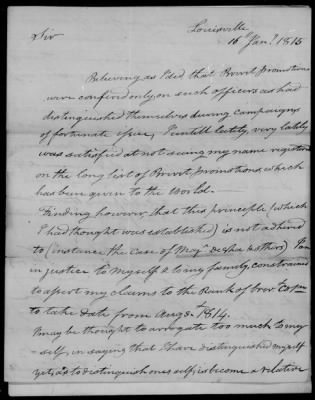 Louisville
16 Jany 1815
Sir
Believing as I did that Brevet promotions
were confered only on such officers as had
distinguished themselves during campaigns
of fortunate issue, I untill lately, very lately
was satisfied at not seeing my name registered
on the long list of Brevet promotions, which
has been given to the World.
Finding however that this principle (which
I had thought was established) is not adhered
to (instance the case of Majr & others) I am
in justice to Myself & to my family, constrained
to assert my claims to the Rank of brev
to take date from Augt 1814.
It may be thought to arrogate too much to my
-self in saying that I have distinguished myself
yet, as to distinguish ones self is become a relative